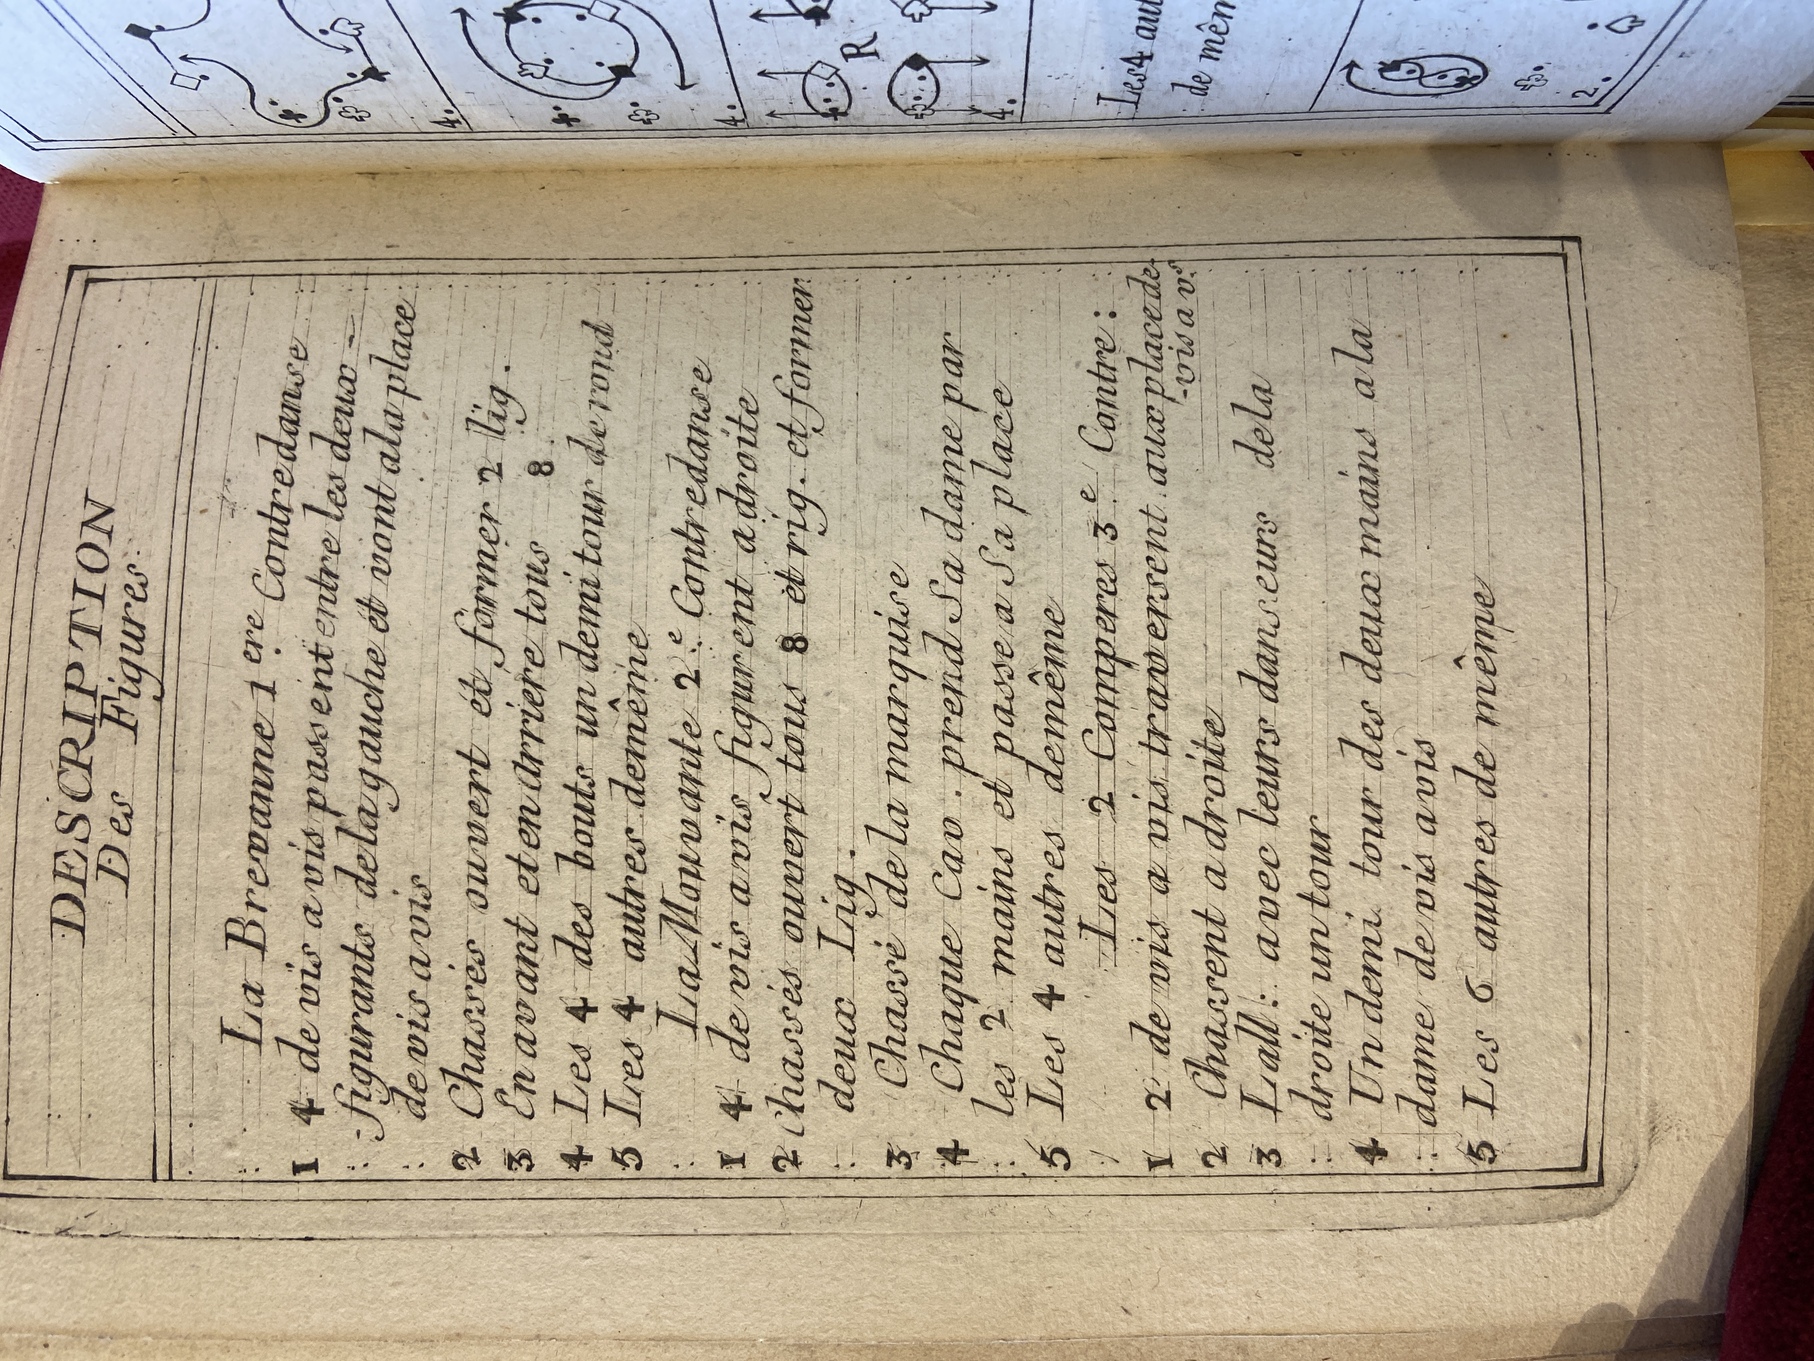 DESCRIPTION
Des Figures
La Brevanne 1.ere Contredanse
1 4 de vis a vis passent entre les deux -
figurants de la gauche et vont a la place
de vis a vis
2 Chassés ouvert et former 2 lig.
3 En avant et en arriere tous 8
4 Les 4 des bouts un demi tour de rond
5 Les 4 autres de même
La Mouvante 2.e Contredanse
1 4 de vis a vis figurent a droite
2 Chassés ouvert tous 8 et rig. et former
deux Lig.
3 Chassé de la marquise
4 Chaque Cav. prend Sa dame par
les 2 mains et passe a Sa place
5 Les 4 autres de même
Les 2 Comperes 3.e Contre:
1 2 de vis a vis traversent aux place de-
-vis a v.s
2 Chassent a droite
3 L'all: avec leurs danseurs de la
droite un tour
4 Un demi tour des deux mains a la
dame de vis a vis
5 Les 6 autres de même
4.
4.
R
4.
Les 4 aut
de mêm
2.